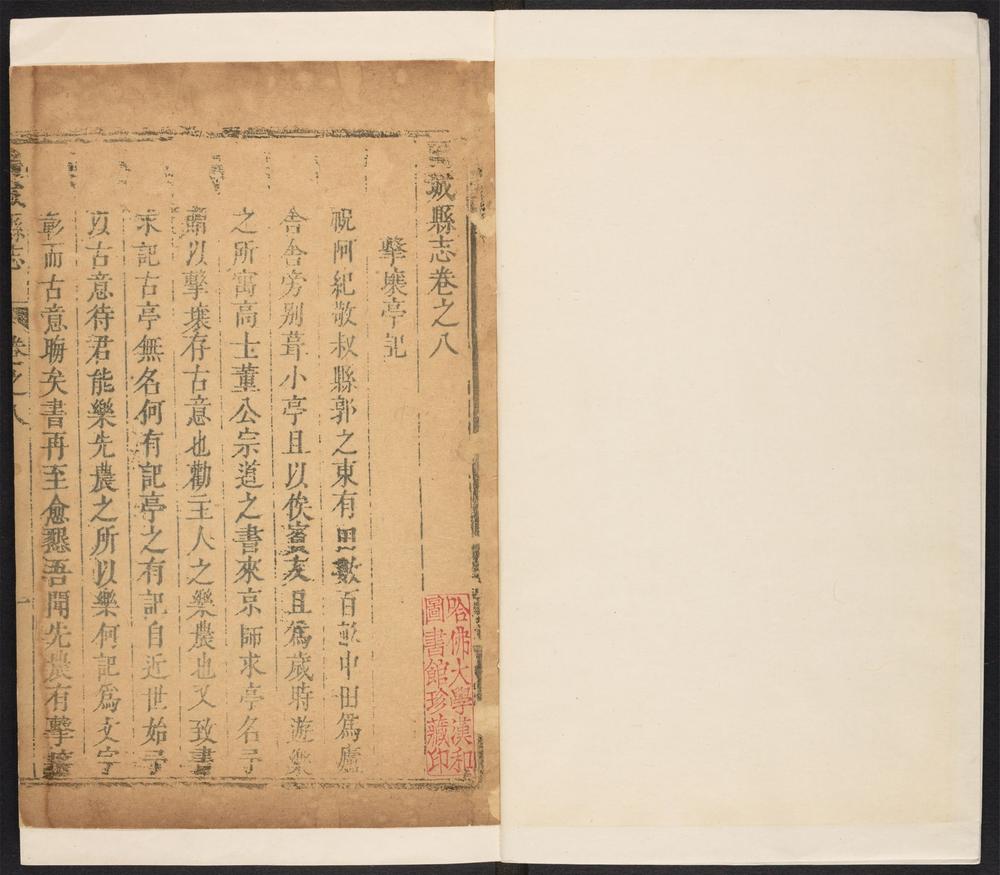 城縣志卷之八
擊壤亭記
祝阿紀敬叔縣郭之東有田數百畝中田爲廬
舍舍旁别葺小亭且以俟賓友且爲歲時遊樂
之所寓高士董公宗道之書來京師求亭名予
題以擊壤存古意也勸主人之樂農也又致書
求記古亭無名何有記亭之有記自近世始予
以古意待君能樂先農之所以樂何記爲文字
彰而古意晦矣書再至愈懇吾聞先農有擊壤
縣志
卷之八
一
哈佛大學漢和
圖書館珍藏印